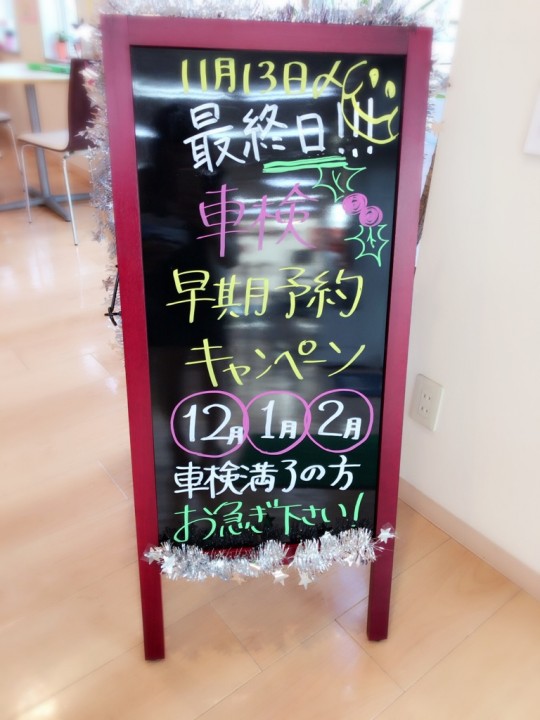 11月13日〆
最終日!!!
車検
早期予約
キャンペーン
12月 1月 2月
車検満了の方
お急ぎ下さい!